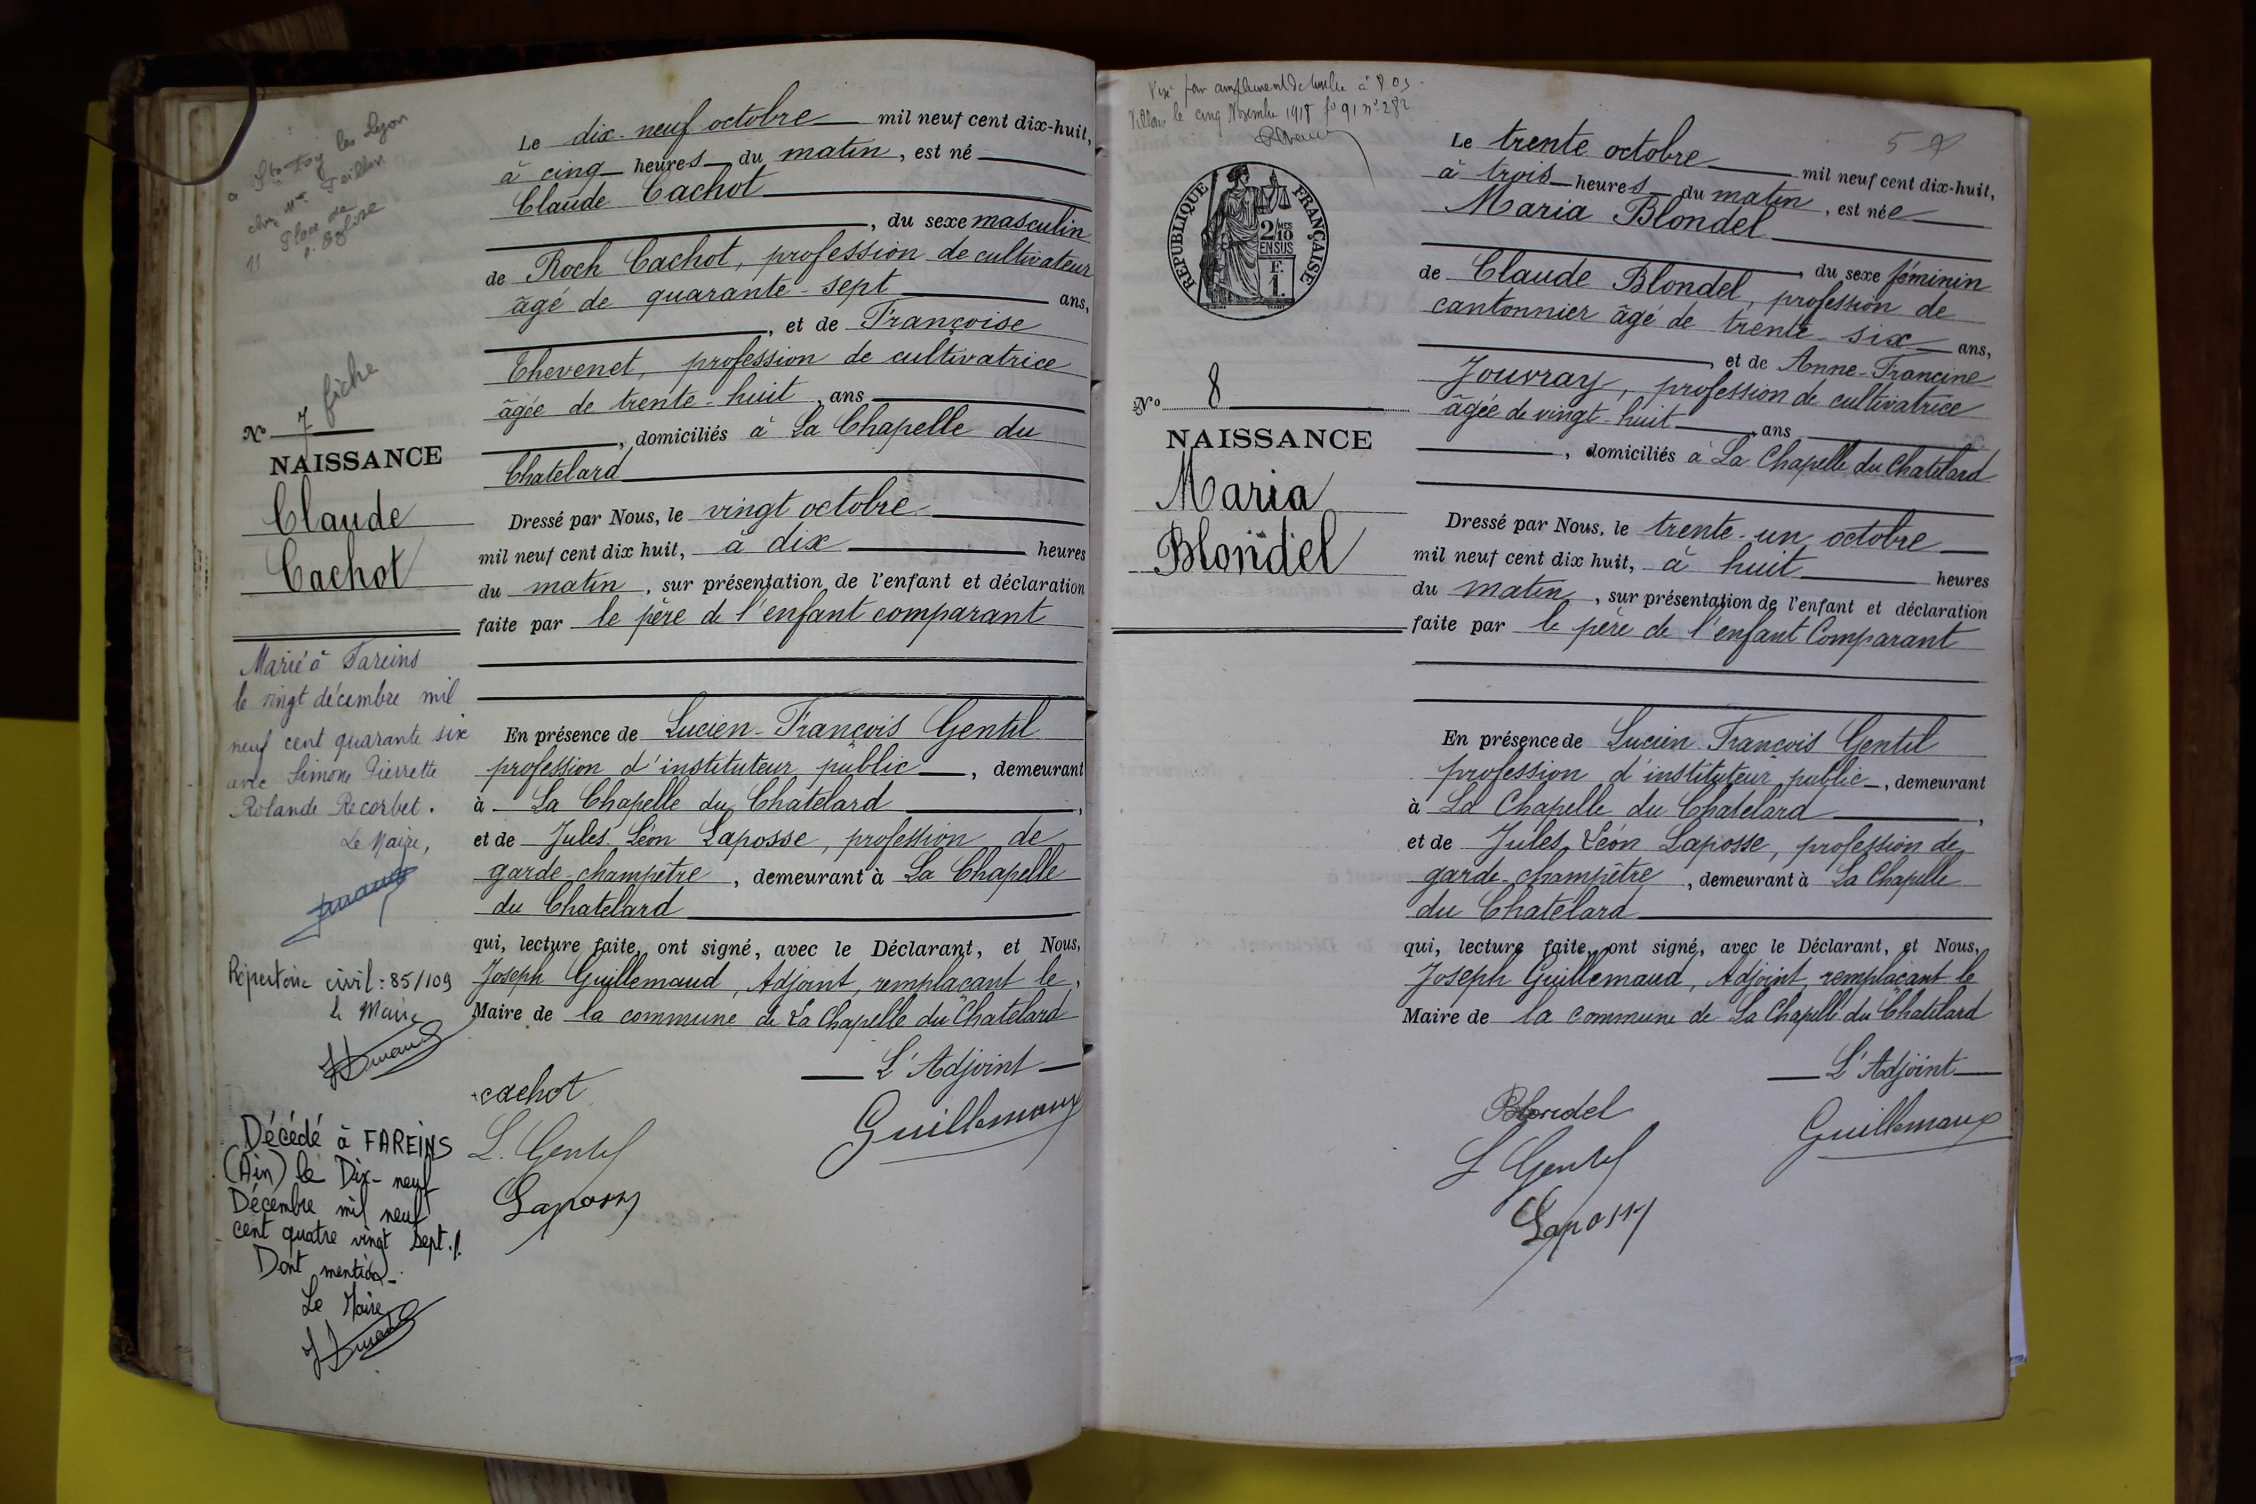 a Ste Foy les Lyon
chez Mme
11 Place de
l'Eglise
fiche
No 7
NAISSANCE
Claude
Cachot
Marié à Fareins
le vingt décembre mil
neuf cent quarante six
avec Simone Pierrette
Rolande Recorbet.
Le Maire,
Répertoire civil : 85/109
le Maire
Décédé à FAREINS
(Ain) le Dix-neuf
Décembre mil neuf
cent quatre vingt sept ./.
Dont mention_.
Le Maire
Le dix-neuf octobre mil neuf cent dix-huit,
à cinq heures du matin, est né
Claude Cachot
, du sexe masculin
de Roch Cachot, profession de cultivateur
âgé de quarante-sept ans,
, et de Françoise
Thevenet, profession de cultivatrice
âgée de trente-huit, ans
, domiciliés à La Chapelle du
Chatelard
Dressé par Nous, le vingt octobre
mil neuf cent dix huit, à dix heures
du matin, sur présentation de l'enfant et déclaration
faite par le père de l'enfant comparant
En présence de Lucien-François Gentil
profession d'instituteur public, demeurant
à La Chapelle du Châtelard,
et de Jules Léon Laposse, profession de
garde-champêtre, demeurant à La Chapelle
du Chatelard
qui, lecture faite, ont signé, avec le Déclarant, et Nous,
Joseph Guillemaud, Adjoint, remplaçant le,
Maire de la commune de La Chapelle du Chatelard
L'Adjoint
cachot
Guillemaud
L. Gentil
Laposse
Visé pour
Villars le cinq Novembre 1918 fo 91 no 282
RÉPUBLIQUE FRANÇAISE
2/10 MES
EN SUS
F.
1.
No 8
NAISSANCE
Maria
Blondel
Le trente octobre mil neuf cent dix-huit,
à trois heures du matin, est née
Maria Blondel
, du sexe féminin
de Claude Blondel, profession de
cantonnier âgé de trente-six ans,
, et de Anne-Francine
Jouvray, profession de cultivatrice
âgée de vingt-huit, ans
, domiciliés à La Chapelle du Chatelard
Dressé par Nous, le trente-un octobre
mil neuf cent dix huit, à huit heures
du matin, sur présentation de l'enfant et déclaration
faite par le père de l'enfant Comparant
En présence de Lucien François Gentil
profession d'instituteur public, demeurant
à La Chapelle du Chatelard,
et de Jules Léon Laposse, profession de
garde-champêtre, demeurant à La Chapelle
du Chatelard
qui, lecture faite, ont signé, avec le Déclarant, et Nous,
Joseph Guillemaud, Adjoint, remplaçant le
Maire de la commune de La Chapelle du Chatelard
L'Adjoint
Blondel
Guillemaud
L Gentil
Laposse